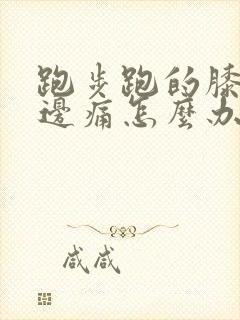 跑步跑的膝
邊痛怎麼办
咸咸